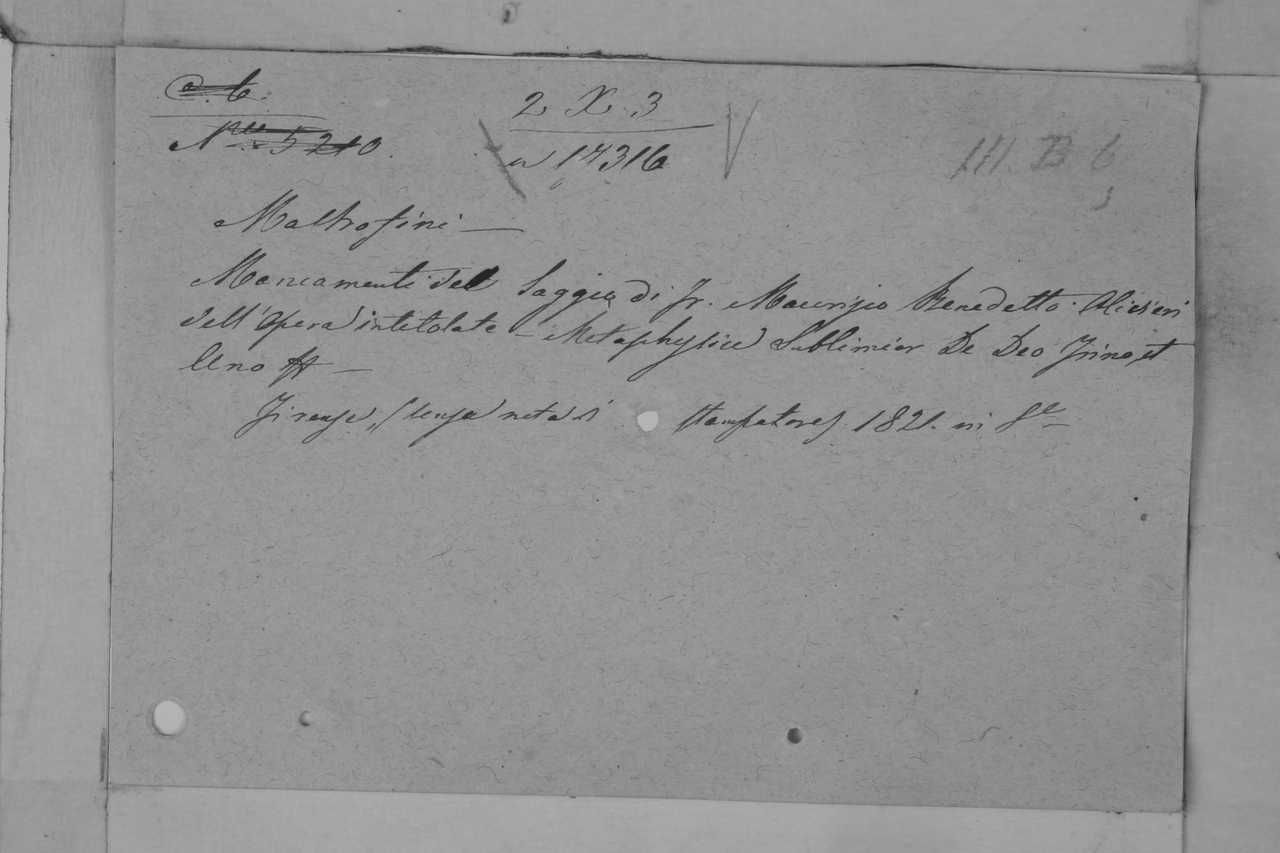 C. 6.
2 X. 3
N.ro 5210.
a 14316
III. B 6
Mastrofini —
Mancamenti del Saggio di Fr. Maurizio Benedetto Olivieri
dell'opera intitolata — Metaphysica Sublimior De Deo Trino, et
Uno —
Firenze, (senza nota di stampatore) 1821. in 8.º —